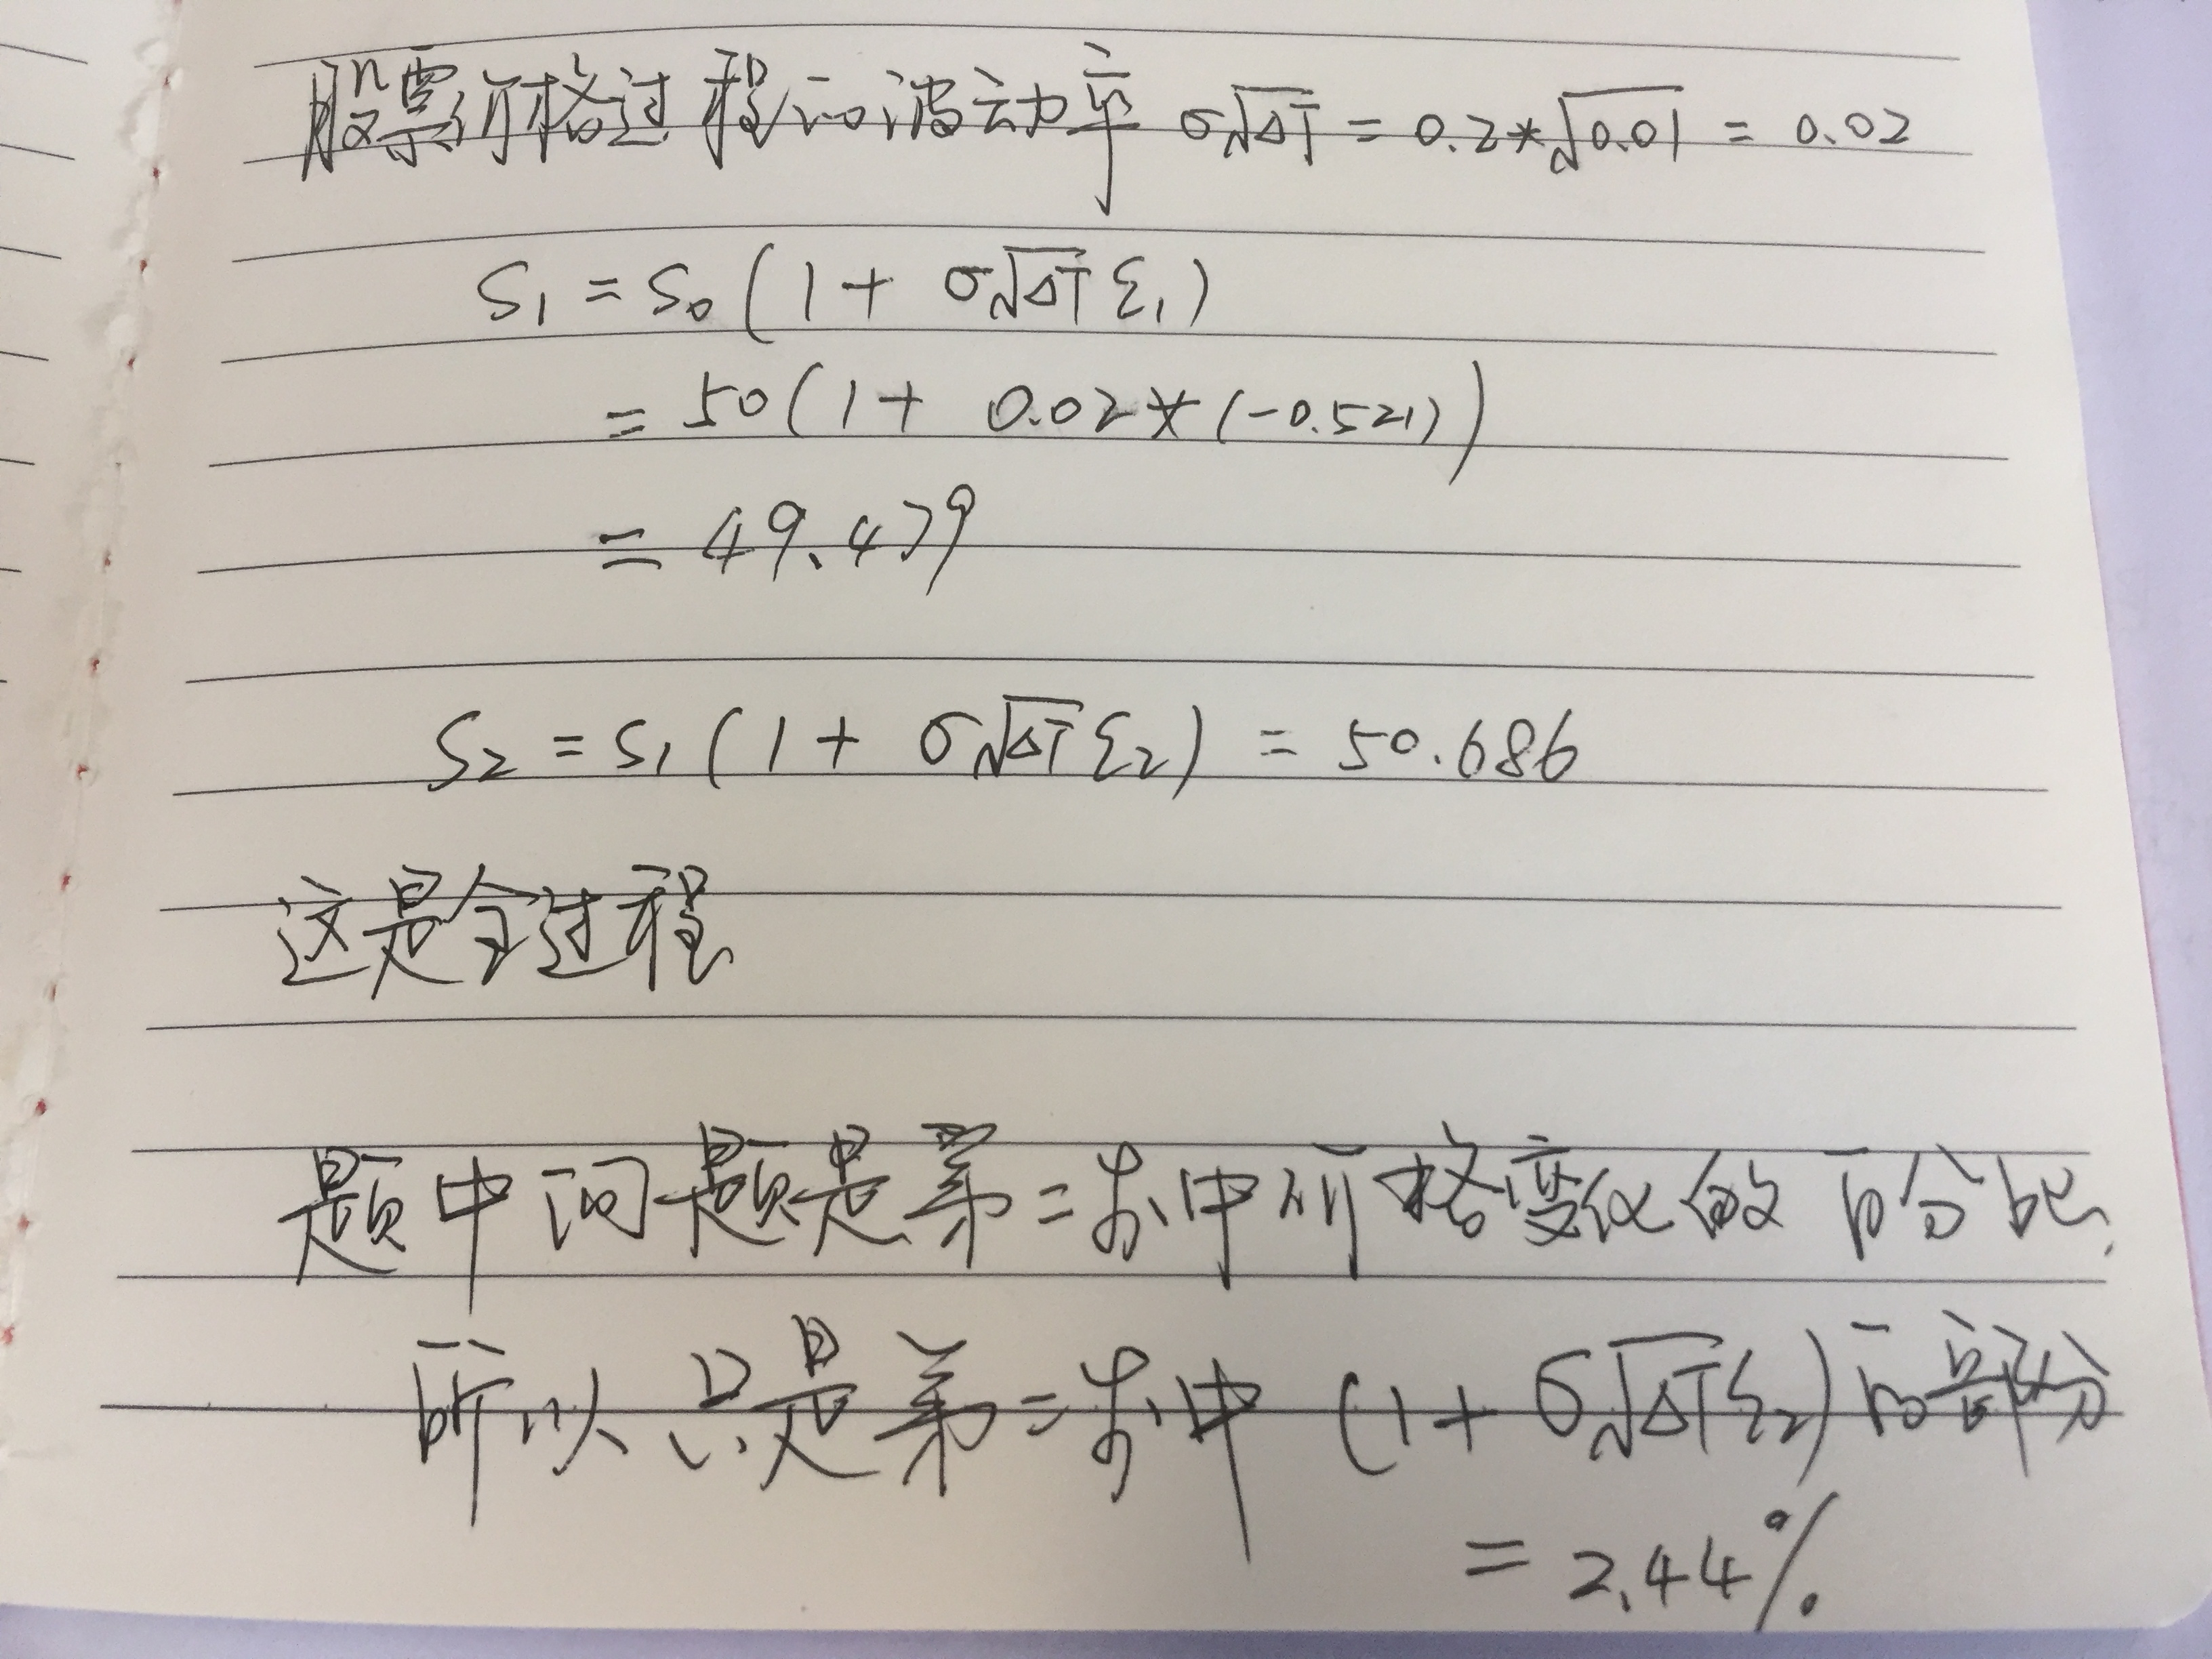 股票价格过程的波动率 σ√ΔT = 0.2*√0.01 = 0.02
S₁ = S₀(1+ σ√ΔT ε₁)
= 50(1+ 0.02*(-0.521))
= 49.479
S₂ = S₁(1+ σ√ΔT ε₂) = 50.686
这是全过程
题中问题是第二步中价格变化的百分比,
所以只是第二步中(1+ σ√ΔT ε₂)的部分
= 2.44%